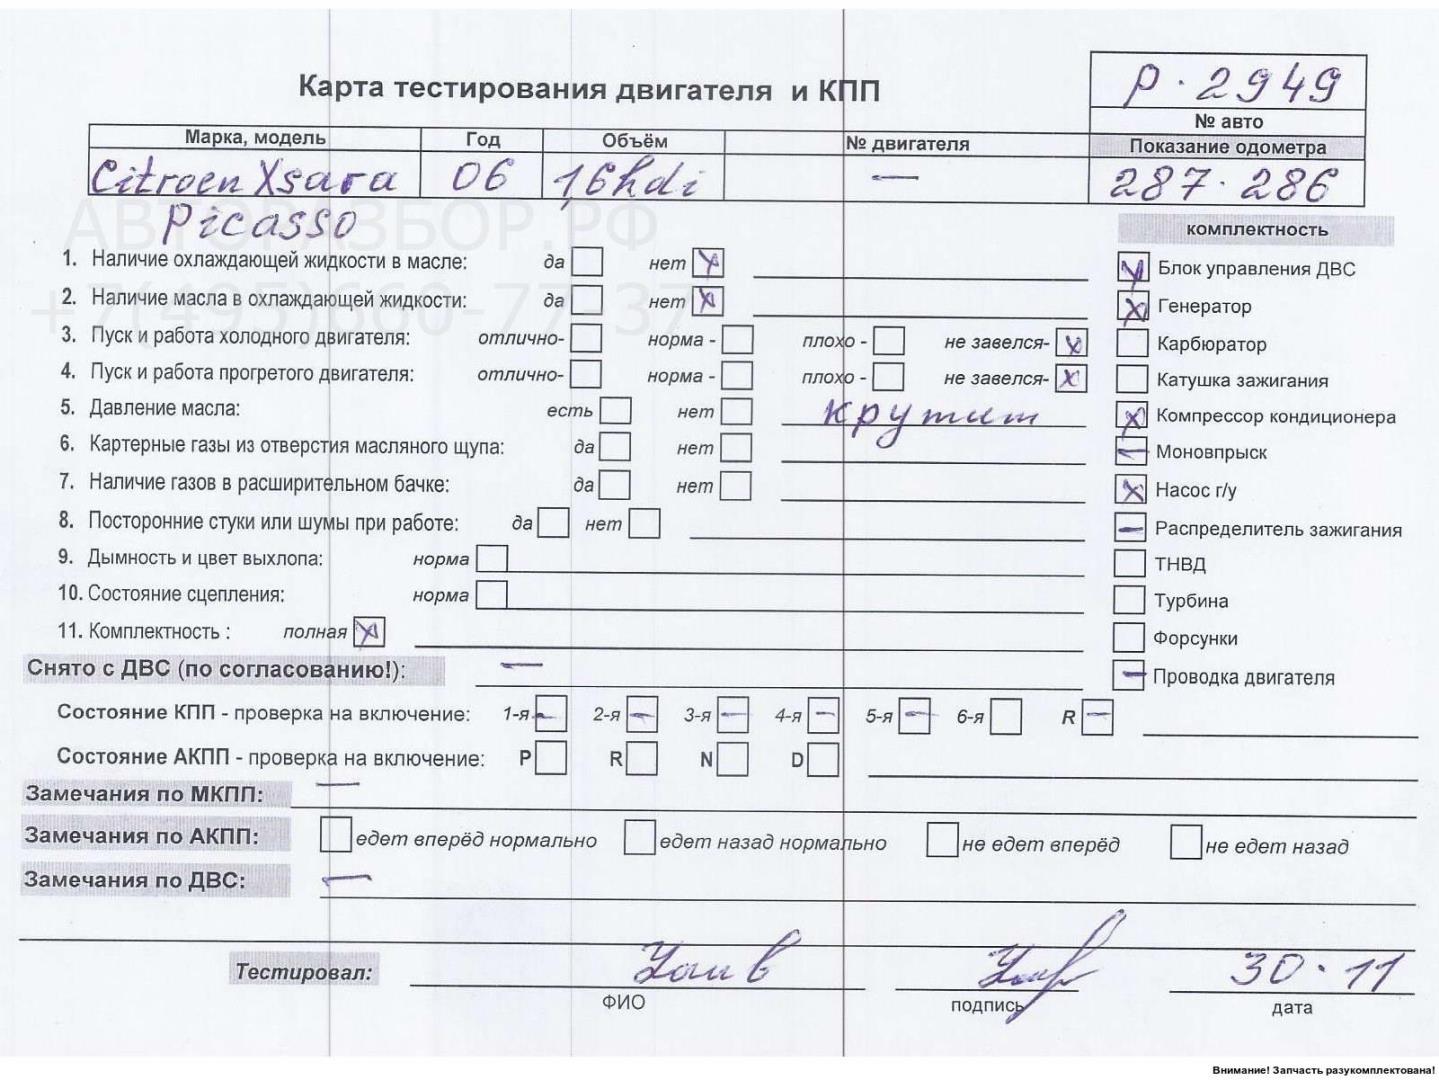 Карта тестирования двигателя и КПП
Р · 2949
№ авто
Марка, модель Год Объём № двигателя Показание одометра
Citroen Xsara 06 1,6hdi — 287 · 286
Picasso
АВТОРАЗБОР.РФ
+7(495)660-77-37
комплектность
1. Наличие охлаждающей жидкости в масле: да нет
Блок управления ДВС
2. Наличие масла в охлаждающей жидкости: да нет
Генератор
3. Пуск и работа холодного двигателя: отлично- норма - плохо - не завелся-
Карбюратор
4. Пуск и работа прогретого двигателя: отлично- норма - плохо - не завелся-
Катушка зажигания
5. Давление масла: есть нет крутит
Компрессор кондиционера
6. Картерные газы из отверстия масляного щупа: да нет
Моновпрыск
7. Наличие газов в расширительном бачке: да нет
Насос г/у
8. Посторонние стуки или шумы при работе: да нет
Распределитель зажигания
9. Дымность и цвет выхлопа: норма
ТНВД
10. Состояние сцепления: норма
Турбина
11. Комплектность : полная
Форсунки
Снято с ДВС (по согласованию!): —
Проводка двигателя
Состояние КПП - проверка на включение: 1-я 2-я 3-я 4-я 5-я 6-я R
Состояние АКПП - проверка на включение: P R N D
Замечания по МКПП: —
Замечания по АКПП: едет вперёд нормально едет назад нормально не едет вперёд не едет назад
Замечания по ДВС: —
Тестировал: 30 · 11
ФИО подпись дата
Внимание! Запчасть разукомплектована!